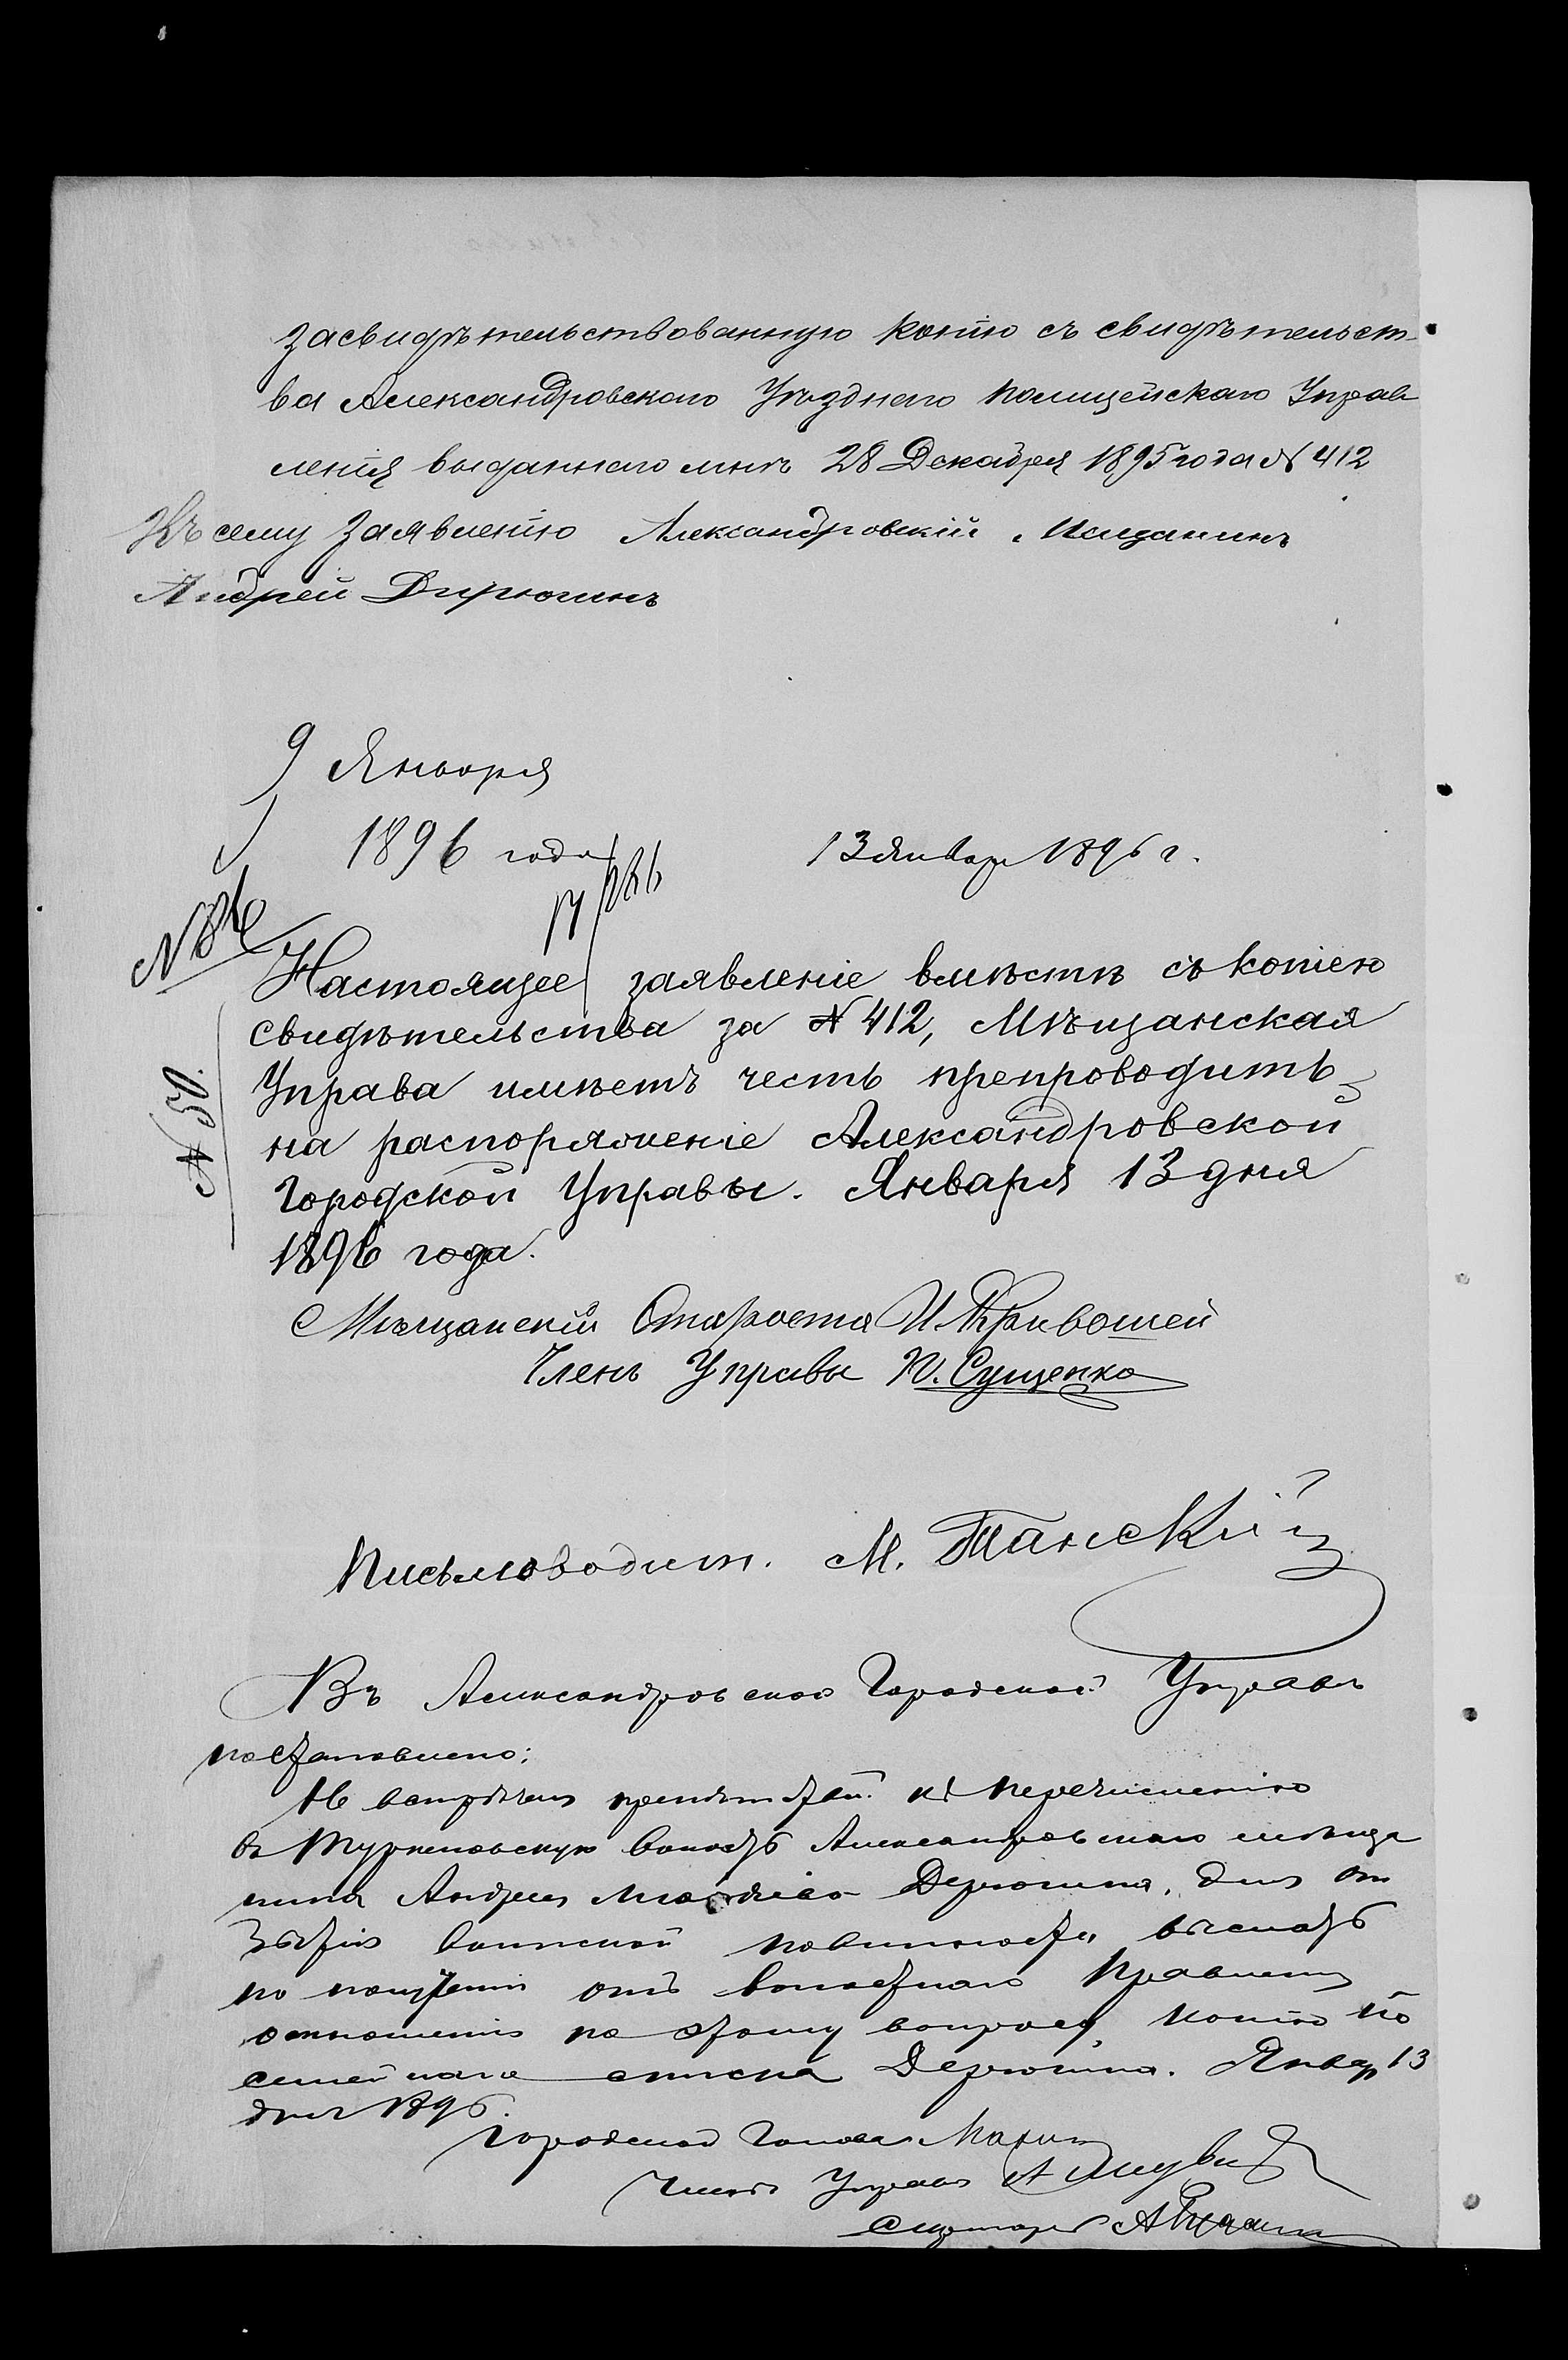 засвидѣтельствованную копію съ свидѣтельст-
ва Александровскаго Уѣзднаго Полицейскаго Управ
ленія выданнаго мнѣ 28 Декабря 1895 года № 412
Къ сему Заявленію Александровскій Мещанинъ
Андрей Дирюгинъ
9 Января
1896 года
13 Января 1896 г.
№ 86
Настоящее заявленіе вмѣстѣ съ копіею
свидѣтельства за № 412, Мѣщанская
Управа имѣетъ честь препроводить
на распоряженіе Александровской
Городской Управы. Января 13 дня
1896 года.
№ 30.
Мѣщанскій Староста И. Кривошей
Членъ Управы К. Сущенко
Письмоводит. М. Танскій
Въ Александровской Городской Управѣ
постановлено:
Не встрѣчая препятствій къ перечисленію
въ Туркеновскую волость Александровскаго мѣщa
нина Андрея Дерюгина, для от
бытія воинской повинности, выслать
по полученіи отъ волостнаго Правленія
отношенія по этому вопросу, копію по
семейнаго списка Дерюгина. Январ 13
дня 1896.
Городской Голова
Членъ Управы А
Секретарь А